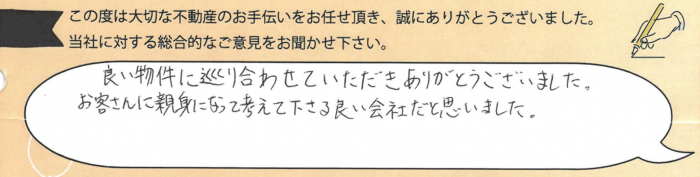 この度は大切な不動産のお手伝いをお任せ頂き、誠にありがとうございました。
当社に対する総合的なご意見をお聞かせ下さい。
良い物件に巡り合わせていただきありがとうございました。
お客さんに親身になって考えて下さる良い会社だと思いました。